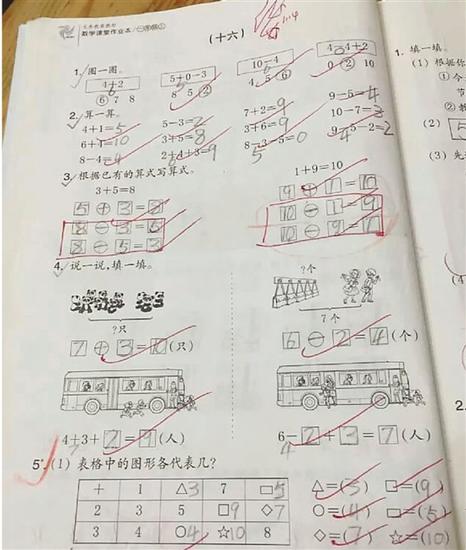 义务教育教材
数学课堂作业本/一年级上
(十六)
1. 圈一圈。
4+2 5+0-3 10-4 4-4+2
⑥ 7 8 8 5 ② 4 5 ⑥ 0 ② 10
2. 算一算。
4+1=5 5-3=2 7+2=9 9-5=4
6+4=10 3+5=8 3+6=9 10-7=3
8-4=4 2+4+3=9 8-3-5=0 9-5-2=2
3. 根据已有的算式写算式。
3+5=8 1+9=10
5+3=8 9+1=10
8-3=5 10-1=9
8-5=3 10-9=1
4. 说一说,填一填。
?个
?只 7个
7+3=10(只) 6-2=4(个)
4+3+2=9(人) 6-2+3=7(人)
5*.(1) 表格中的图形各代表几?
+ 1 △3 7 □5
2 3 5 □9 ◇7
3 4 ○4 ☆10 8
△=(3) □=(9)
○=(4) □=(5)
◇=(7) ☆=(10)
1. 填一填。
(1) 根据你
① 今
节
② 若
(2) 5
(3) 先